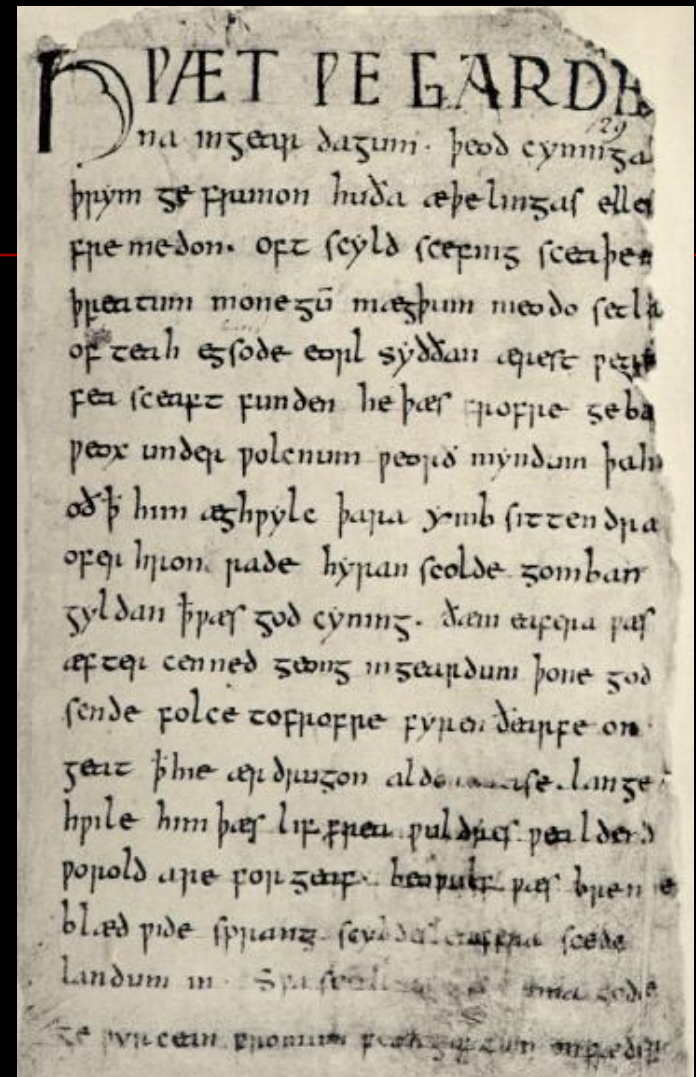 HǷÆT ǷE GARDE
129
na ingear dagum. þeod cyninga
þrym ge frunon huða æþelingas elle
fre medon. oft scyld scefing sceaþe
þreatum monegū mægþum meodo setla
of teah egsode eorl syððan ærest ƿear
fea sceaft funden he þæs frofre geba
ƿeox under ƿolcnum ƿeorð myndum þah
oð ꝥ him æghƿylc þara ymb sittendra
ofer hron rade hyran scolde gomban
gyldan ꝥ ƿæs god cyning. ðæm eafera ƿæs
æfter cenned geong ingeardum þone god
sende folce tofrofre fyren ðearfe on
geat ꝥ hie ær drugon aldor ase. lange
hƿile him þæs lif frea ƿuldres ƿealdend
ƿorold are for geaf. beoƿulf ƿæs breme
blæd ƿide sprang scyldes eafera scede
landum in. Sƿa sceal guma gode
ge ƿyrcean fromum feoh giftum on fæder